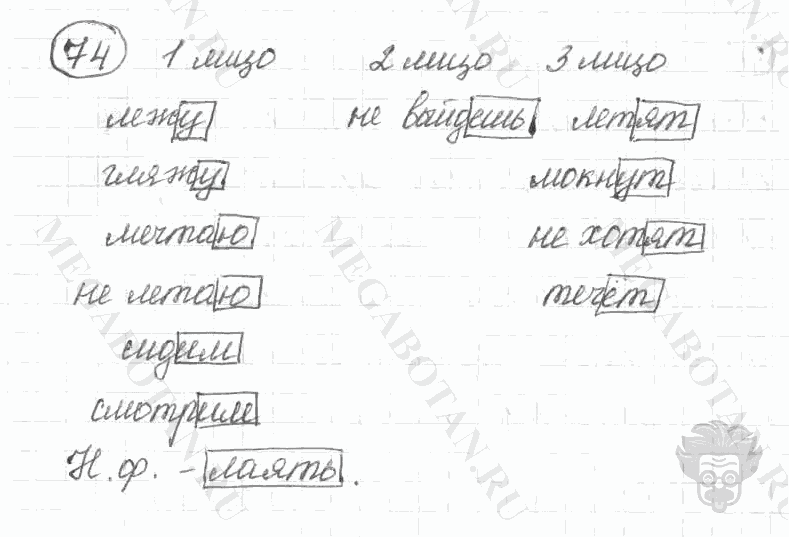 74 1 лицо 2 лицо 3 лицо
лежу не выйдешь летят
гляжу мокнут
мечтаю не хотят
не летаю течёт
сидим
смотрим
Н.ф. - лаять.
MEGABOTAN.RU
MEGABOTAN.RU
MEGABOTAN.RU